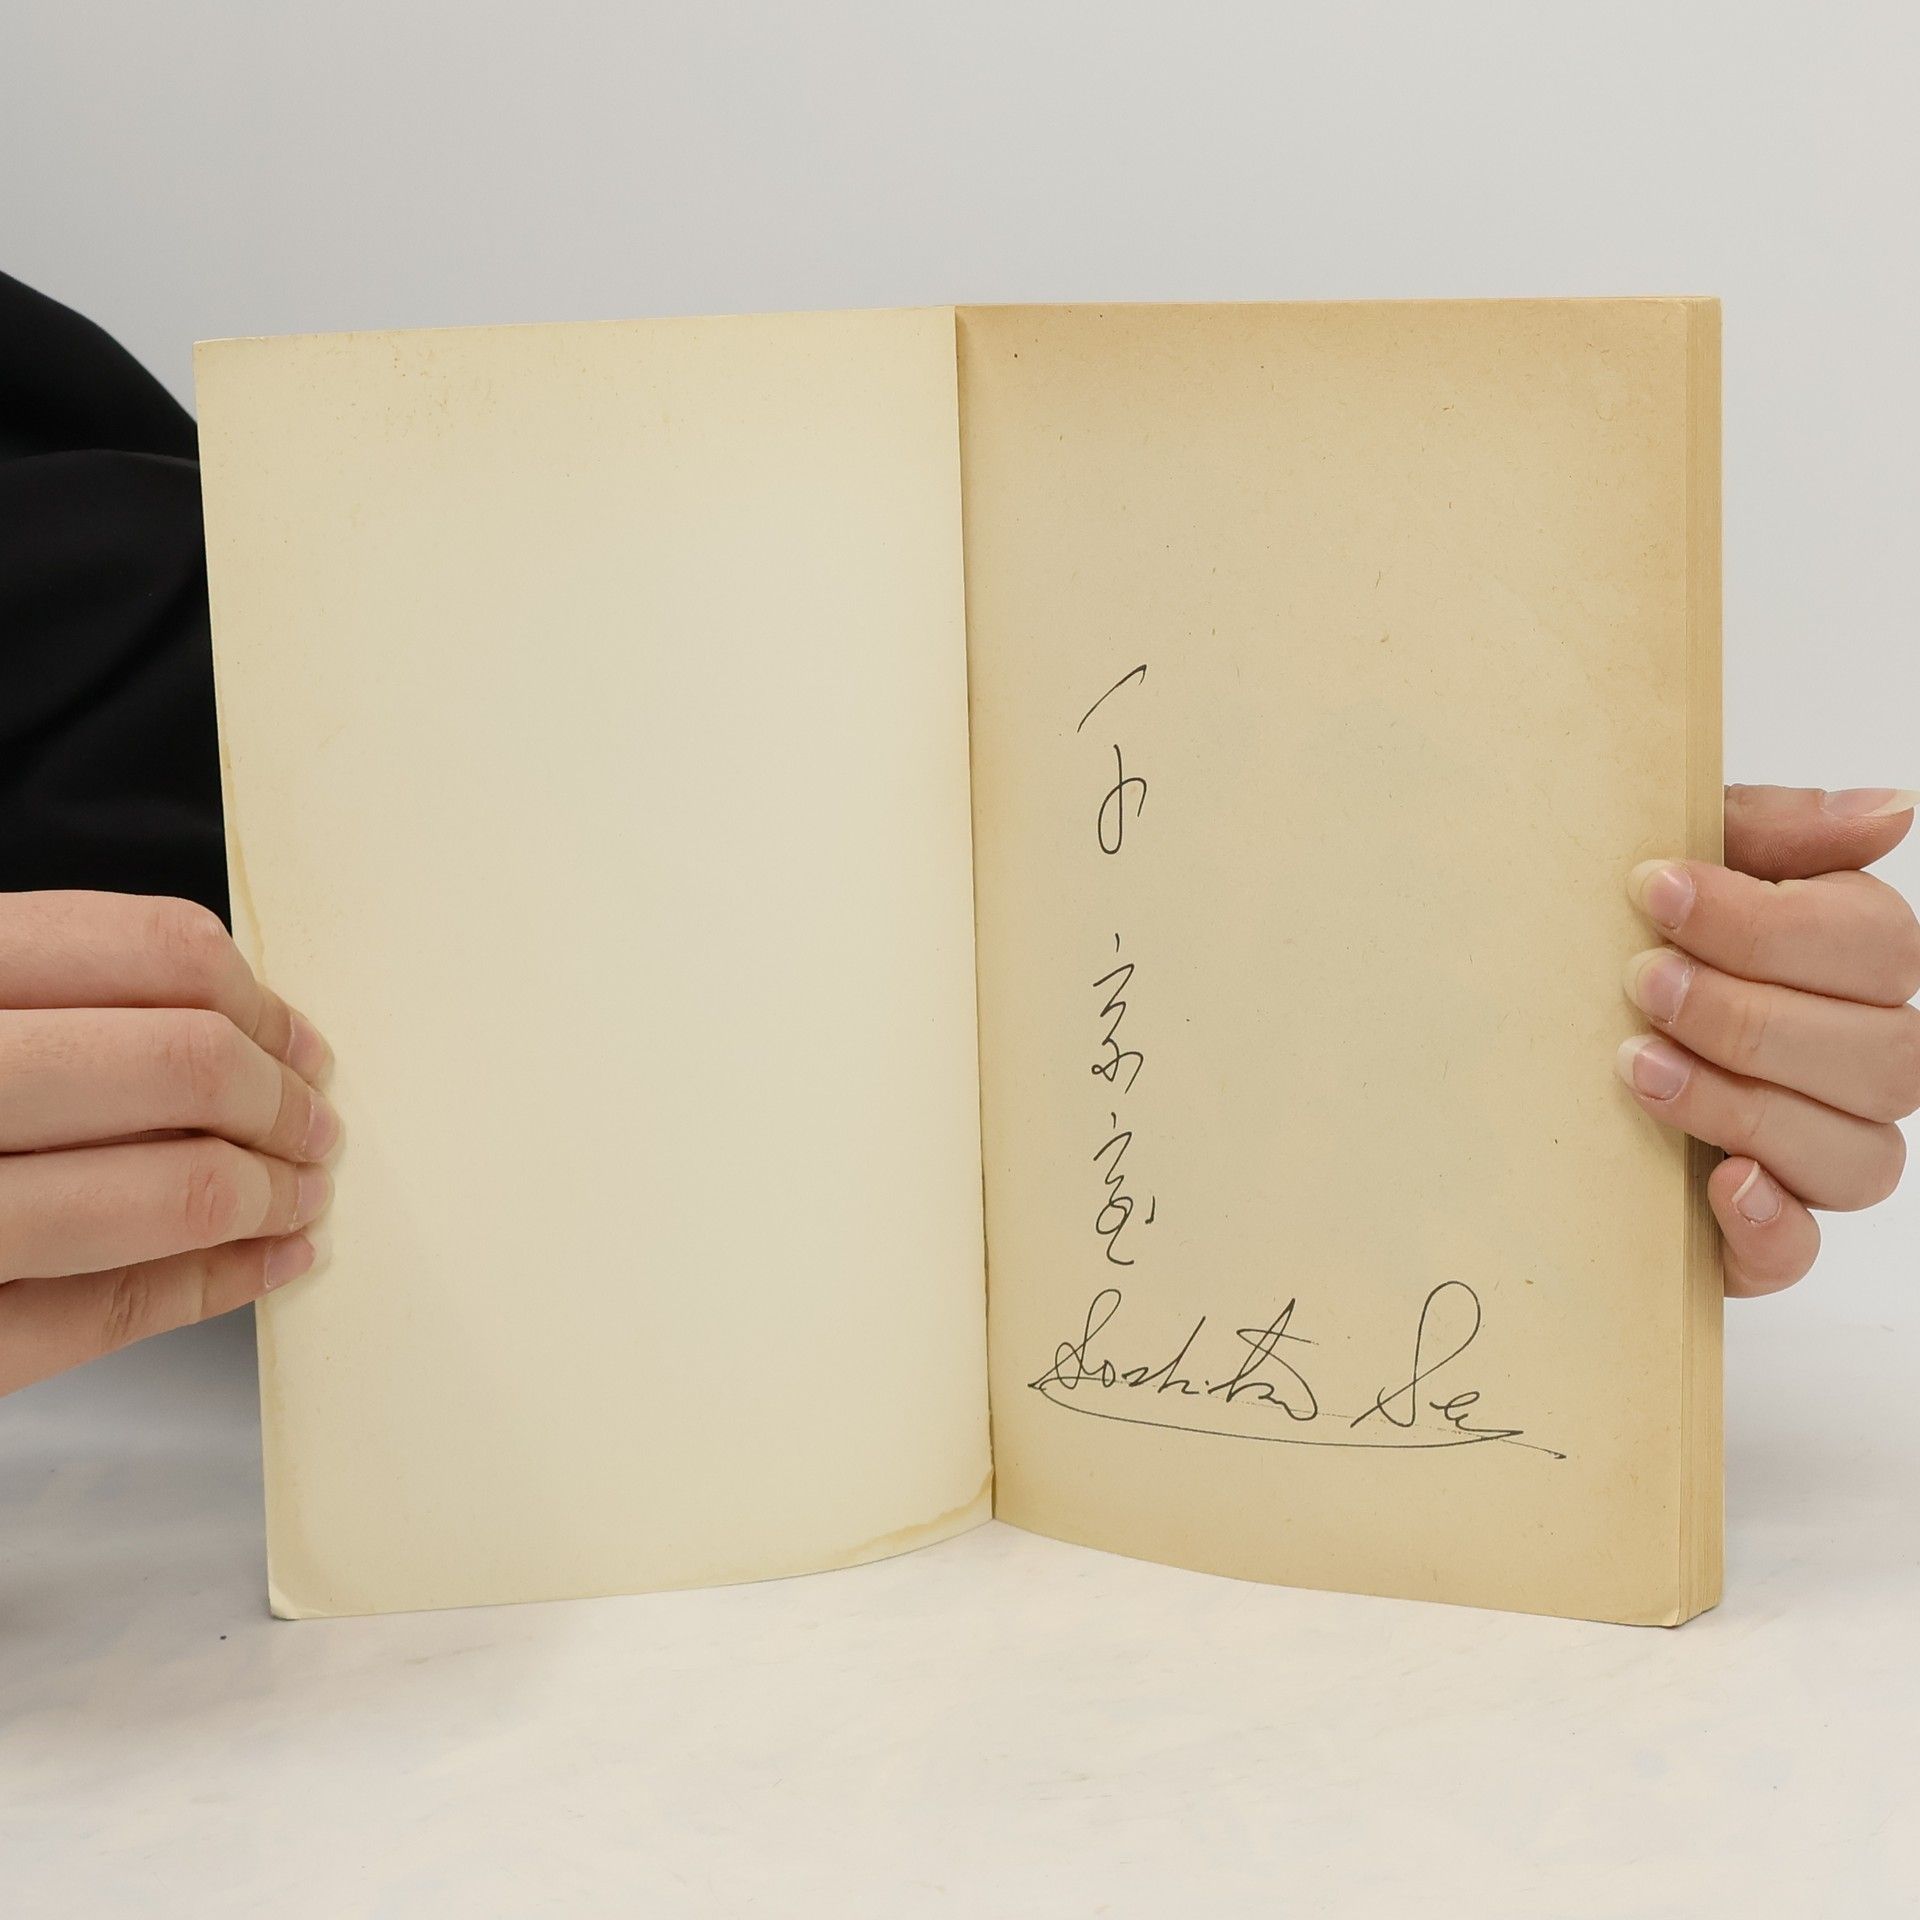 千宗室
Soshitsu Sen